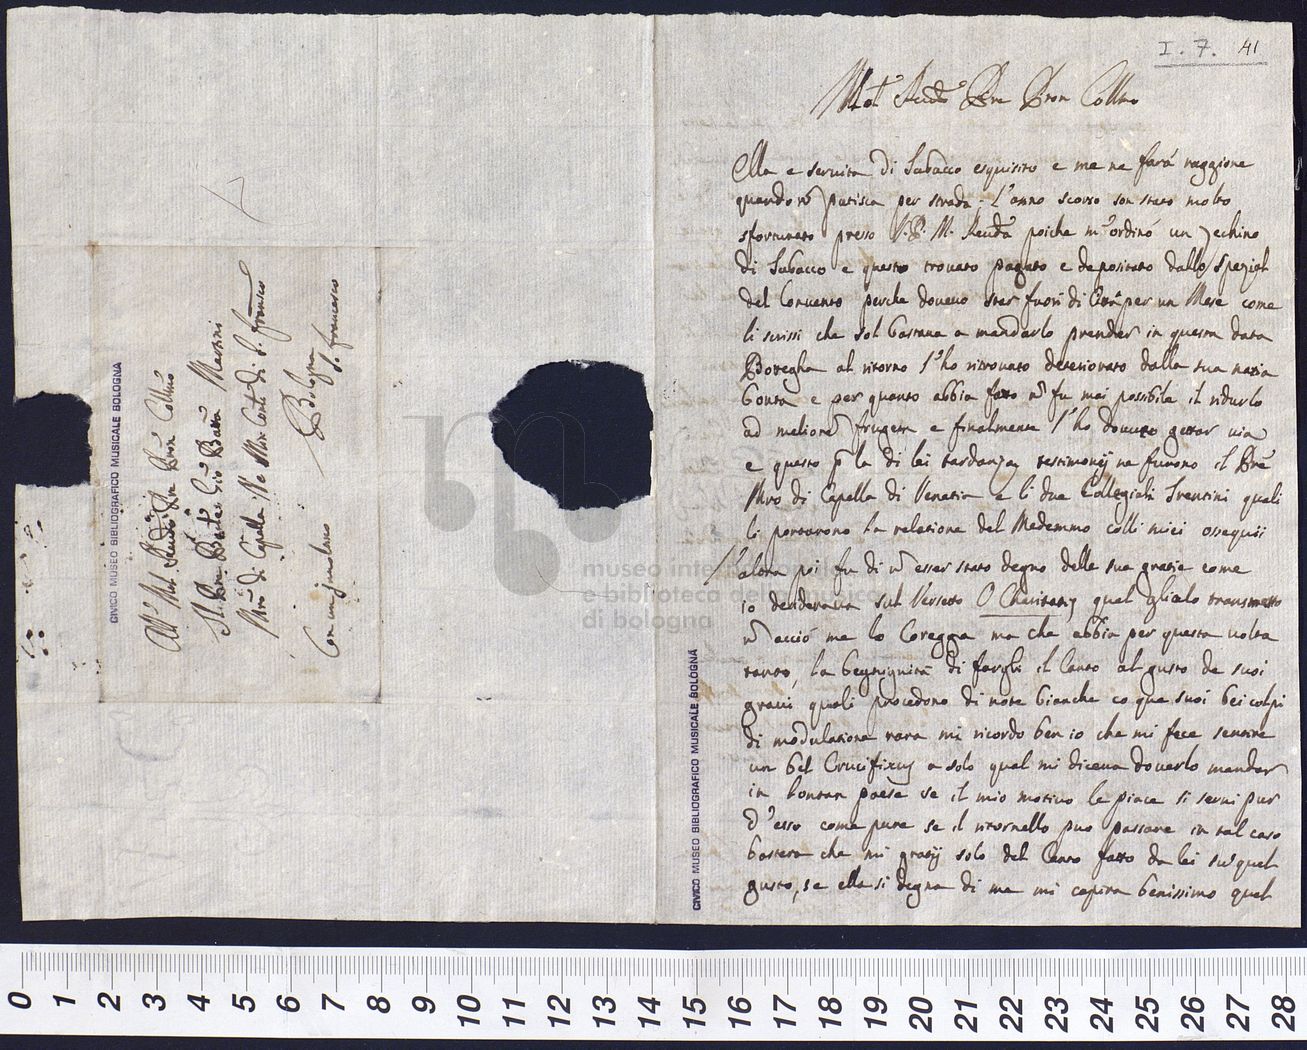 I. 7. 41
Mol. Revdo Pre Pron Collmo
Ella e servita di Tabacco esquisito e me ne farà raggione
quando nõ patisca per strada. L'anno scorso son stato molto
sfortunato presso V. P. M. Revda poiche m'ordinò un zechino
di Tabacco e questo trovato pagato e depositato dallo Spezial
del Convento perche dovevo star fuori di Città per un Mese come
li scrissi che sol bastava a mandarlo prender in questa data
Bottegha al ritorno l'ho ritrovato deteriorato dalla sua nativa
bontà e per quanto abbia fatto nõ fu mai possibile il ridurlo
ad meliorem frugem e finalmente l'ho dovuto gettar via
e questo p la di lei tardanza, testimonij ne furono il Pre
Mro di Capella di Venetia e li due Collegiali Trentini quali
li portarono la relatione del Medemmo colli miei ossequii
l'altra poi fu di nõ esser stato degno delle sue gratie come
io desiderava sul Versetto O Charitatis, qual glielo transmetto
nõ acciò me lo Coregga ma che abbia per questa volta
tanto, la benignità di fargli il Canto al gusto de suoi
gravi quali procedono di note bianche co que suoi bei colpi
di modulatione rara mi ricordo ben io che mi fece sentire
un bel Crucifixus a solo qual mi diceva doverlo mandar
in lontan paese se il mio motivo le piace si servi pur
d'esso come pure se il ritornello puo passare in tal caso
bastera che mi gratij solo del Canto fatto da lei su quel
gusto, se ella si degna di me mi capita benissimo quel
Al Mol. Revdo Pre Pron Collmo
Il Pre Gio Batta Martini
Mro di Capella ne Min Conti di S. Franсesco
Bologna
Con un involtino S. Francesco
CIVICO MUSEO BIBLIOGRAFICO MUSICALE BOLOGNA
CIVICO MUSEO BIBLIOGRAFICO MUSICALE BOLOGNA
museo internazionale
e biblioteca della musica
di bologna
0 1 2 3 4 5 6 7 8 9 10 11 12 13 14 15 16 17 18 19 20 21 22 23 24 25 26 27 28